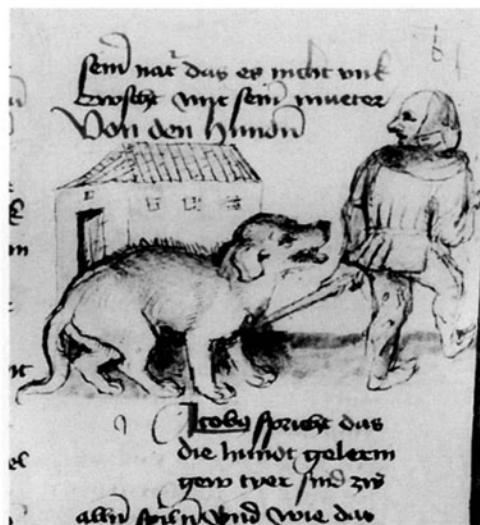 sein nat᷑ das er nicht vnk
kewscht mit sein mueter
Von den hunden
Jacobus spricht das
die hundt gelerm
gew tyer sind zw
allen spiln vnd wie das